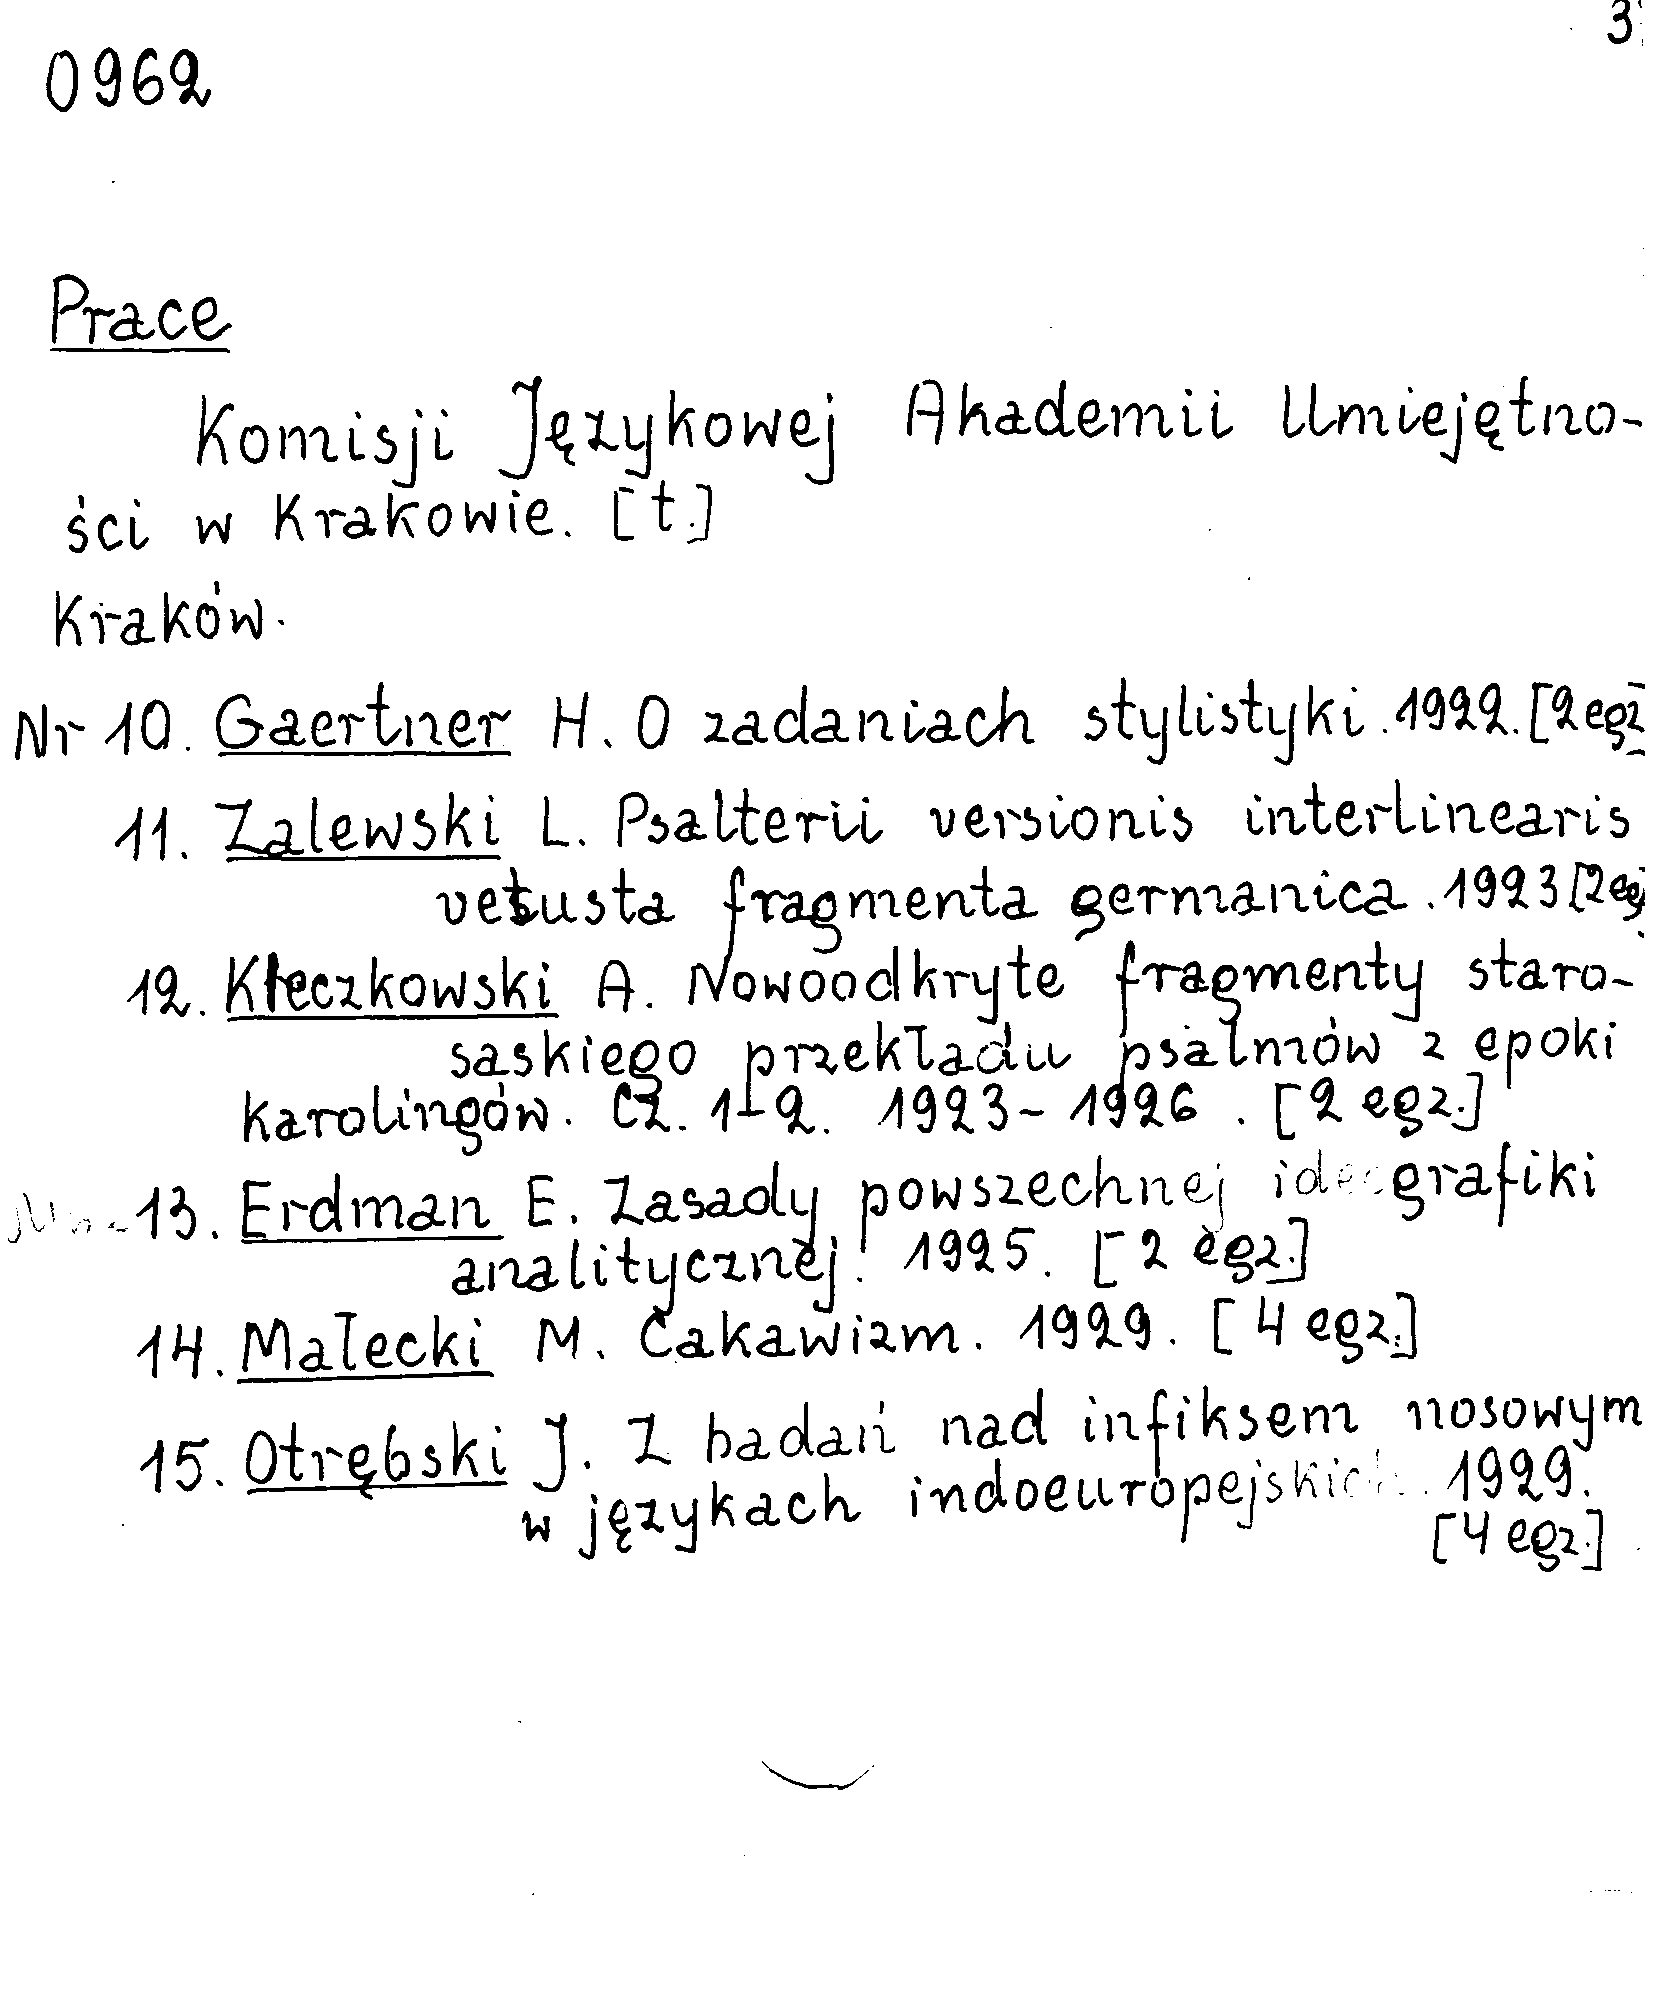 3
0962
Prace
Komisji Językowej Akademii Umiejętno-
ści w Krakowie. [t.]
Kraków.
Nr 10. Gaertner H. O zadaniach stylistyki. 1922. [2 egz
11. Zalewski L. Psalterii versionis interlinearis
vetusta fragmenta germanica. 1923 [2 eg
12. Kleczkowski A. Nowoodkryte fragmenty staro-
saskiego przekładu psalmów z epoki
karolingów. Cz. 1-2. 1923-1926. [2 egz.]
13. Erdman E. Zasady powszechnej ideografiki
analitycznej. 1925. [2 egz.]
14. Małecki M. Cakawizm. 1929. [4 egz.]
15. Otrębski J. Z badań nad infiksem nosowym
w językach indoeuropejskich. 1929.
[4 egz.]